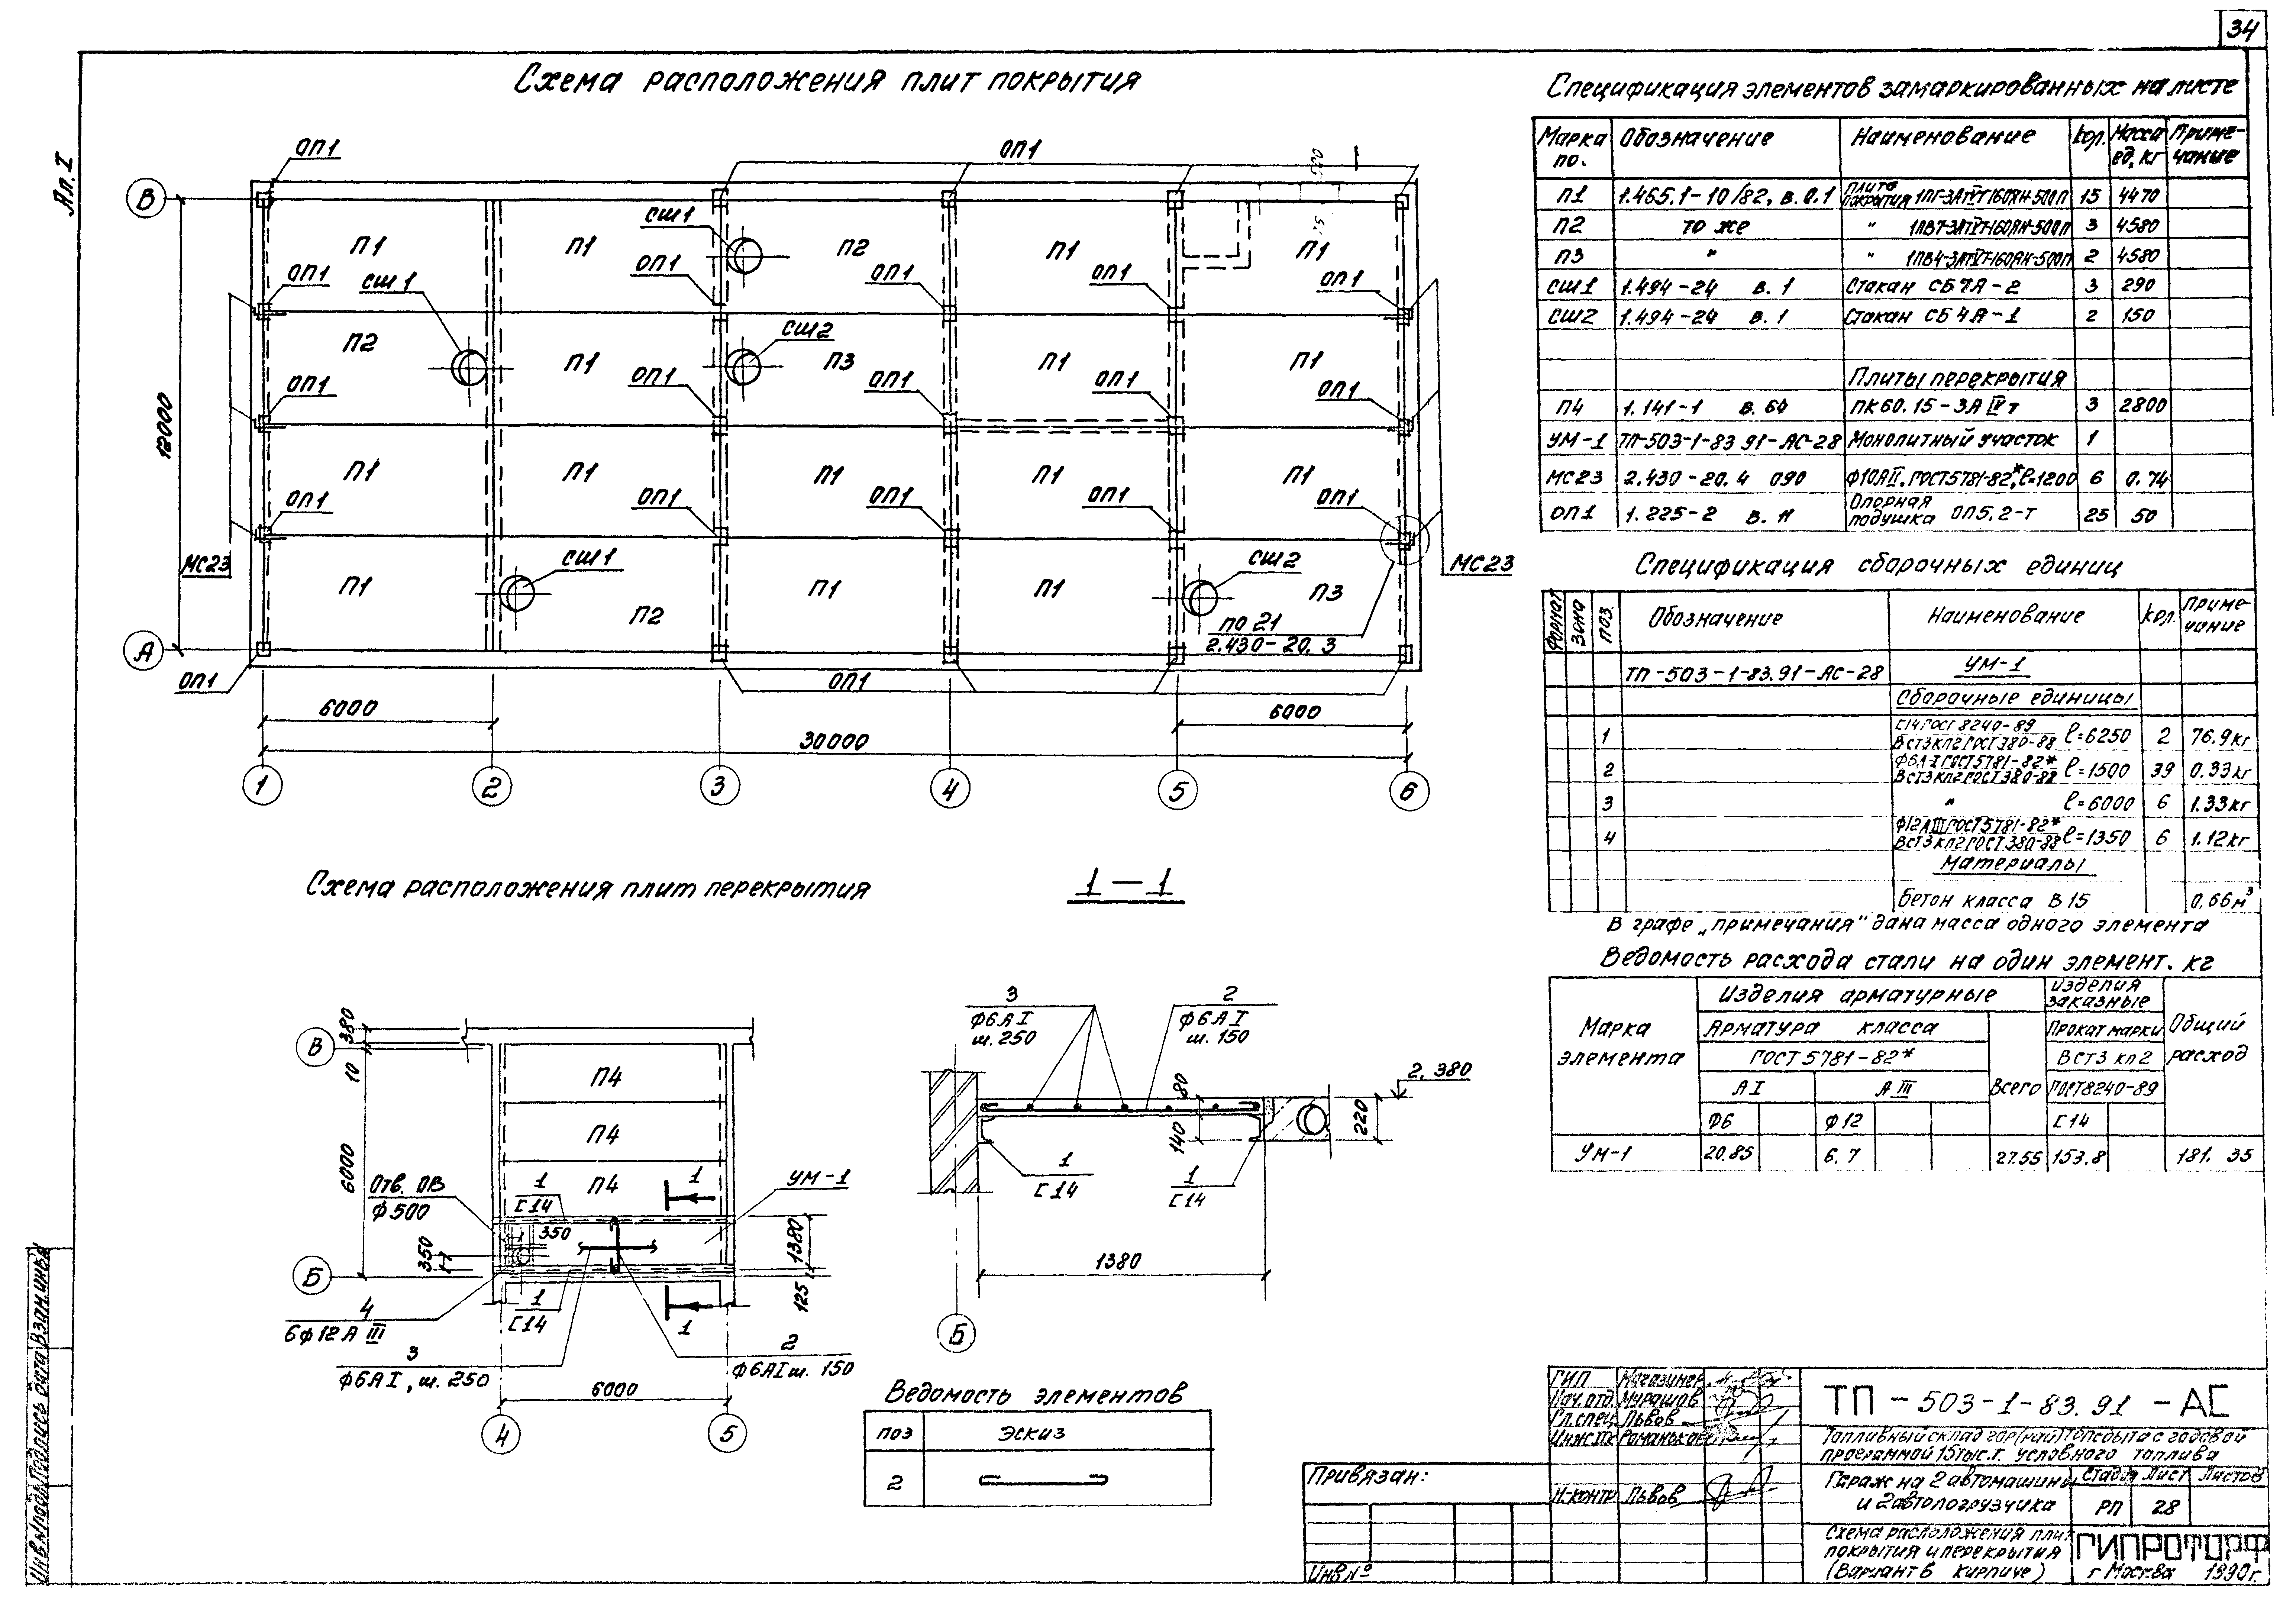 34
Ал. I
Схема расположения плит покрытия
ОП1
ОП1
В
СШ1
П1
П1
П2
П1
П1
ОП1
СШ1
ОП1
ОП1
ОП1
ОП1
СШ2
П2
П1
П3
П1
П1
12000
ОП1
ОП1
ОП1
ОП1
ОП1
П1
П1
П1
П1
П1
ОП1
ОП1
ОП1
ОП1
ОП1
МС23
СШ1
СШ2
МС23
П1
П2
П1
П1
П3
ПО 21
2.430-20.3
А
ОП1
ОП1
6000
6000
30000
1
2
3
4
5
6
Спецификация элементов замаркированных на листе
Марка по. Обозначение Наименование Кол. Масса ед, кг Примечание
П1 1.465.1-10/82, в.0.1 Плита покрытия 1ПГ-3АIVТ-160ПН-500П 15 4470
П2 то же " 1ПВ7-3АIVТ-160ПН-500П 3 4580
П3 " " 1ПВ4-3АIVТ-160ПН-500П 2 4580
СШ1 1.494-24 в. 1 Стакан СБ7А-2 3 290
СШ2 1.494-24 в. 1 Стакан СБ4А-1 2 150
Плиты перекрытия
П4 1.141-1 в. 60 ПК60.15-3А IV т 3 2800
УМ-1 ТП-503-1-83.91-АС-28 Монолитный участок 1
МС23 2.430-20.4 090 Ф10АII, ГОСТ5781-82*, ℓ=1200 6 0.74
ОП1 1.225-2 в. 11 Опорная подушка ОП5.2-Т 25 50
Спецификация сборочных единиц
Формат Зона Поз. Обозначение Наименование Кол. Примечание
ТП-503-1-83.91-АС-28 УМ-1
Сборочные единицы
1 С14 ГОСТ 8240-89 ВСт3кп2 ГОСТ380-88 ℓ=6250 2 76.9кг
2 Ф6А-I ГОСТ5781-82* ВСт3кп2 ГОСТ380-88 ℓ=1500 39 0.33кг
3 " ℓ=6000 6 1.33кг
4 Ф12АIII ГОСТ5781-82* ВСт3кп2 ГОСТ380-88 ℓ=1350 6 1.12кг
Материалы
Бетон класса В15 0.66м³
В графе „примечания" дана масса одного элемента
Ведомость расхода стали на один элемент. кг
Марка элемента
Изделия арматурные
Изделия заказные
Общий расход
Арматура класса
Всего
Прокат марки
ГОСТ 5781-82*
ВСт3 кп2
А I
А III
ГОСТ8240-89
Ф6
Ф12
С 14
УМ-1 20.85 6.7 27.55 153.8 181.35
Схема расположения плит перекрытия
380
В
10
П4
П4
6000
Отв. ОВ
Ф500
1
С 14
П4
1
УМ-1
350
350
1380
Б
125
4
6Ф12А III
1
С 14
1
3
Ф6АI, ш. 250
2
Ф6АI ш. 150
6000
4
5
1-1
3
Ф6А I
ш. 250
2
Ф6А I
ш. 150
80
2.380
140
220
1
С 14
1
С 14
1380
Б
Ведомость элементов
поз Эскиз
2
Привязан:
Инв №
ГИП Магазинер
Нач. отд. Мурашов
Гл. спец. Львов
Н.контр Львов
ТП-503-1-83.91-АС
Топливный склад гор(рай)топсбыта с годовой
программой 15тыс.т. условного топлива
Гараж на 2 автомашины
и 2 автопогрузчика
Стадия Лист Листов
РП 28
Схема расположения плит
покрытия и перекрытия
(Вариант в кирпиче)
ГИПРОТОРФ
г Москва 1990г.
Инв.№подл. Подпись и дата Взам.инв.№